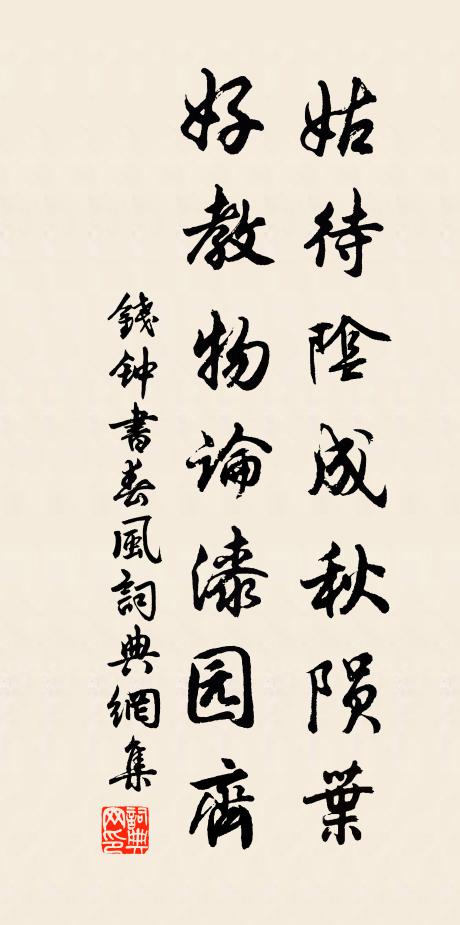 姑待陰成秋陨葉
好教物論漆园齊
錢钟書春風詞典網集
詞典网印